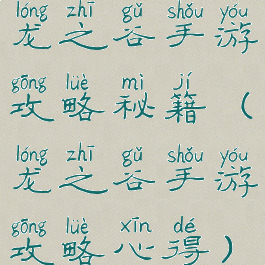 lóng zhī gǔ shǒu yóu
龙之谷手游
gōng lüè mì jí
攻略秘籍（
lóng zhī gǔ shǒu yóu
龙之谷手游
gōng lüè xīn dé
攻略心得）